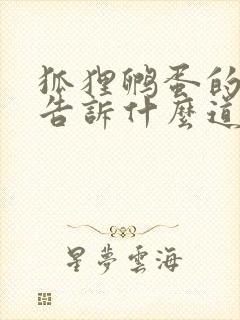 狐狸鹏蛋的
告訴什麼道
星夢雲海